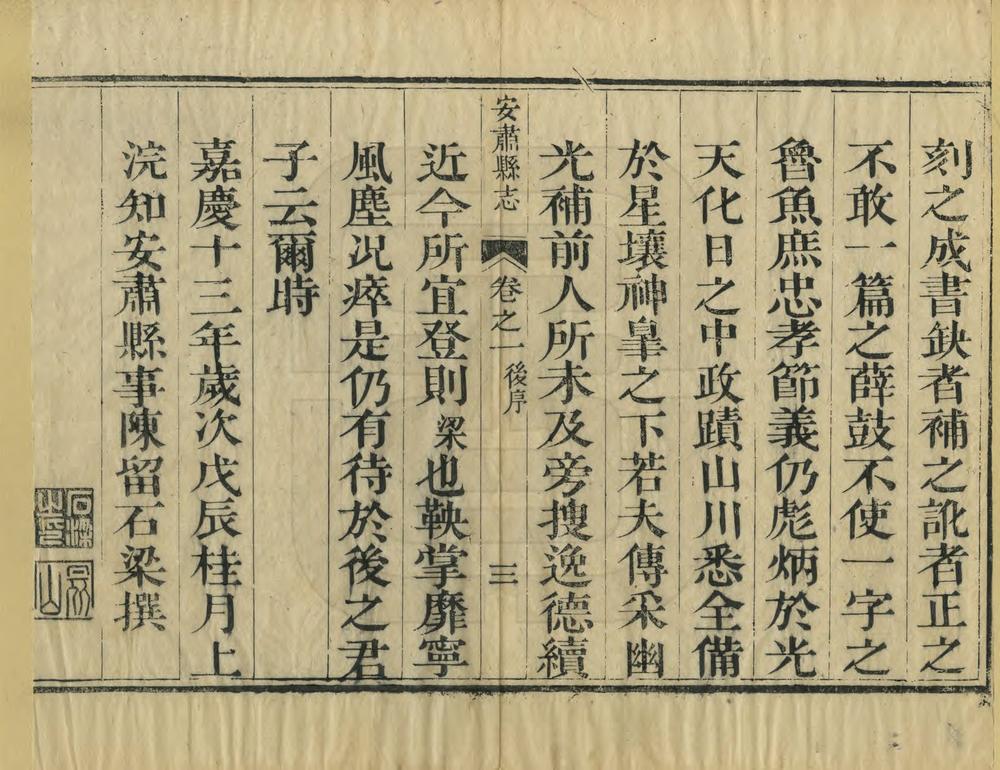 刻之成書缺者補之訛者正之
不敢一篇之薛鼓不使一字之
魯魚庶忠孝節義仍彪炳於光
天化日之中政蹟山川悉全備
於星壤神臯之下若夫傳采幽
光補前人所未及旁搜逸德續
安肅縣志
卷之一
後序
三
近今所宜登則梁也鞅掌靡寧
風塵况瘁是仍有待於後之君
子云爾時
嘉慶十三年歲次戊辰桂月上
浣知安肅縣事陳留石梁撰
石梁之印